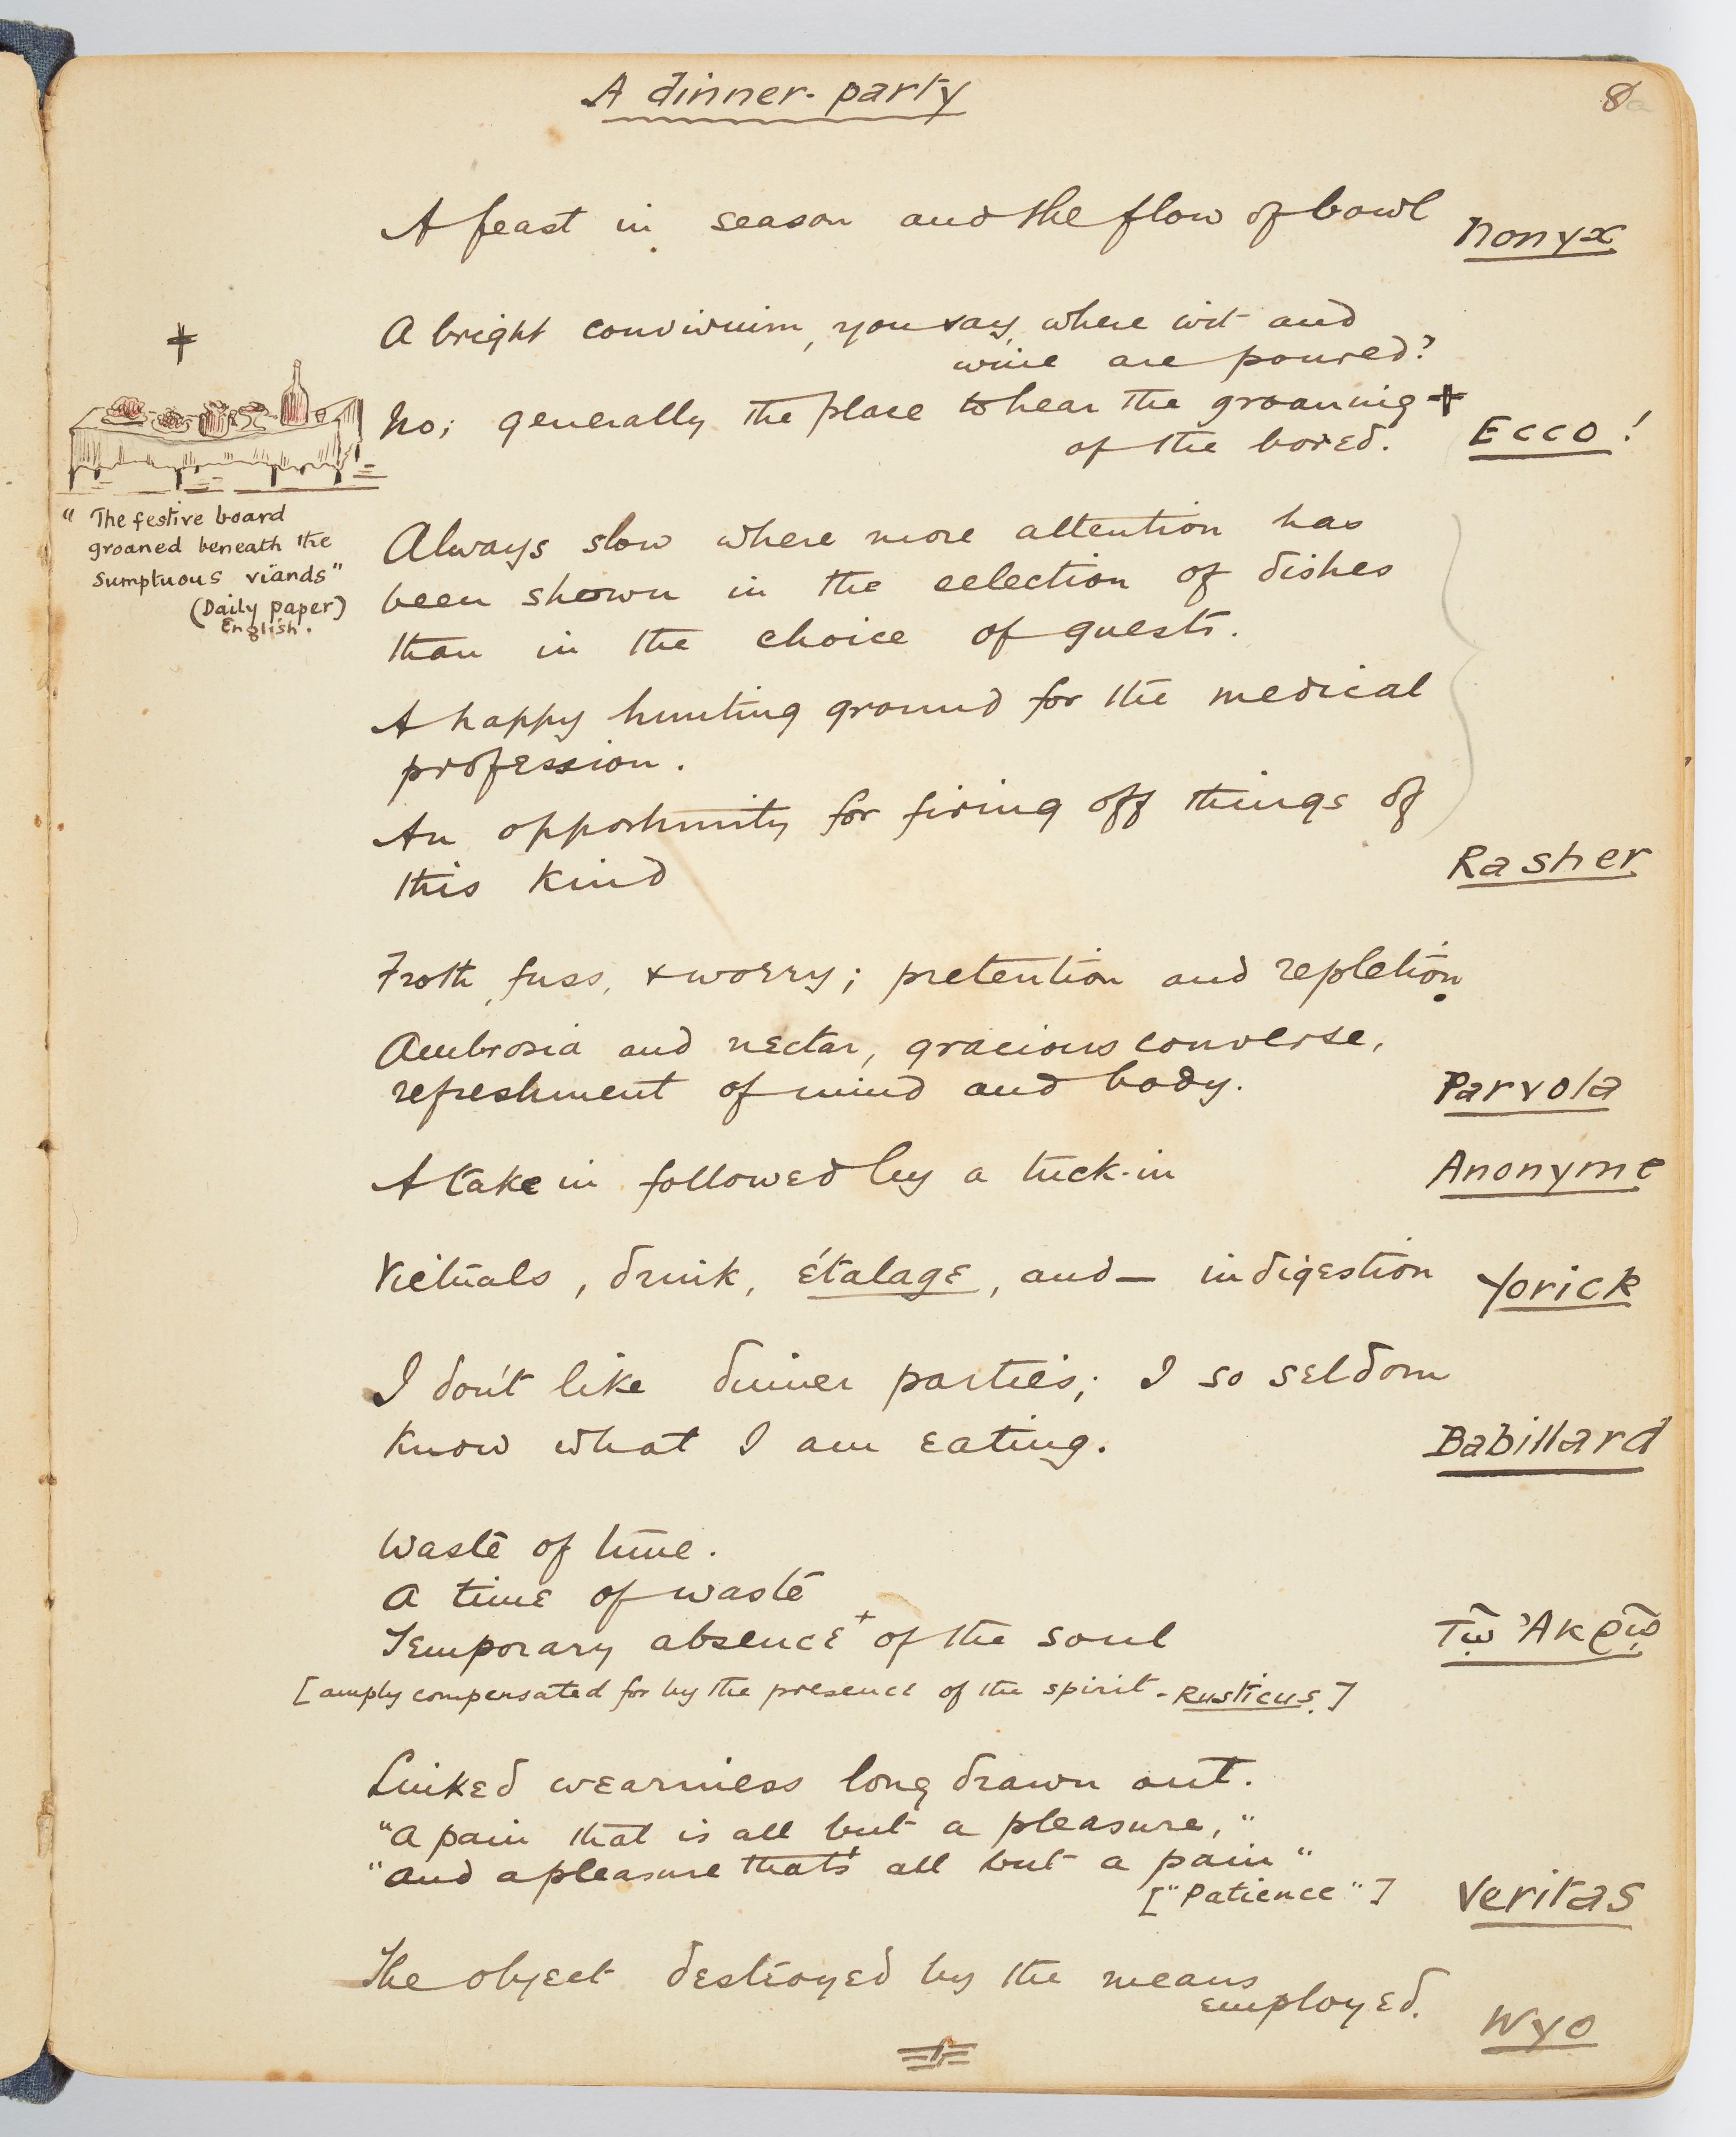 A dinner-party
8
A feast in season and the flow of bowl
Nonyx
A bright convivium, you say, where wit and
wine are poured?
No; generally the place to hear the groaning +
of the bored.
Ecco!
+
"The festive board
groaned beneath the
sumptuous viands"
(Daily paper)
English.
Always slow where more attention has
been shown in the selection of dishes
than in the choice of guests.
A happy hunting ground for the medical
profession.
An opportunity for firing off things of
this kind
Rasher
Froth, fuss, & worry; pretention and repletion.
Ambrosia and nectar, gracious converse,
refreshment of mind and body.
Parvola
A take in followed by a tuck-in
Anonyme
Victuals, drink, étalage, and — indigestion
Yorick
I don't like dinner parties; I so seldom
know what I am eating.
Babillard
Waste of time.
A time of waste
Temporary absence + of the soul
Τῷ Ἀκρῷ
[amply compensated for by the presence of the spirit - Rusticus.]
Linked weariness long drawn out.
"A pain that is all but a pleasure,"
"And a pleasure that's all but a pain"
["Patience"]
Veritas
The object destroyed by the means
employed.
Wyo